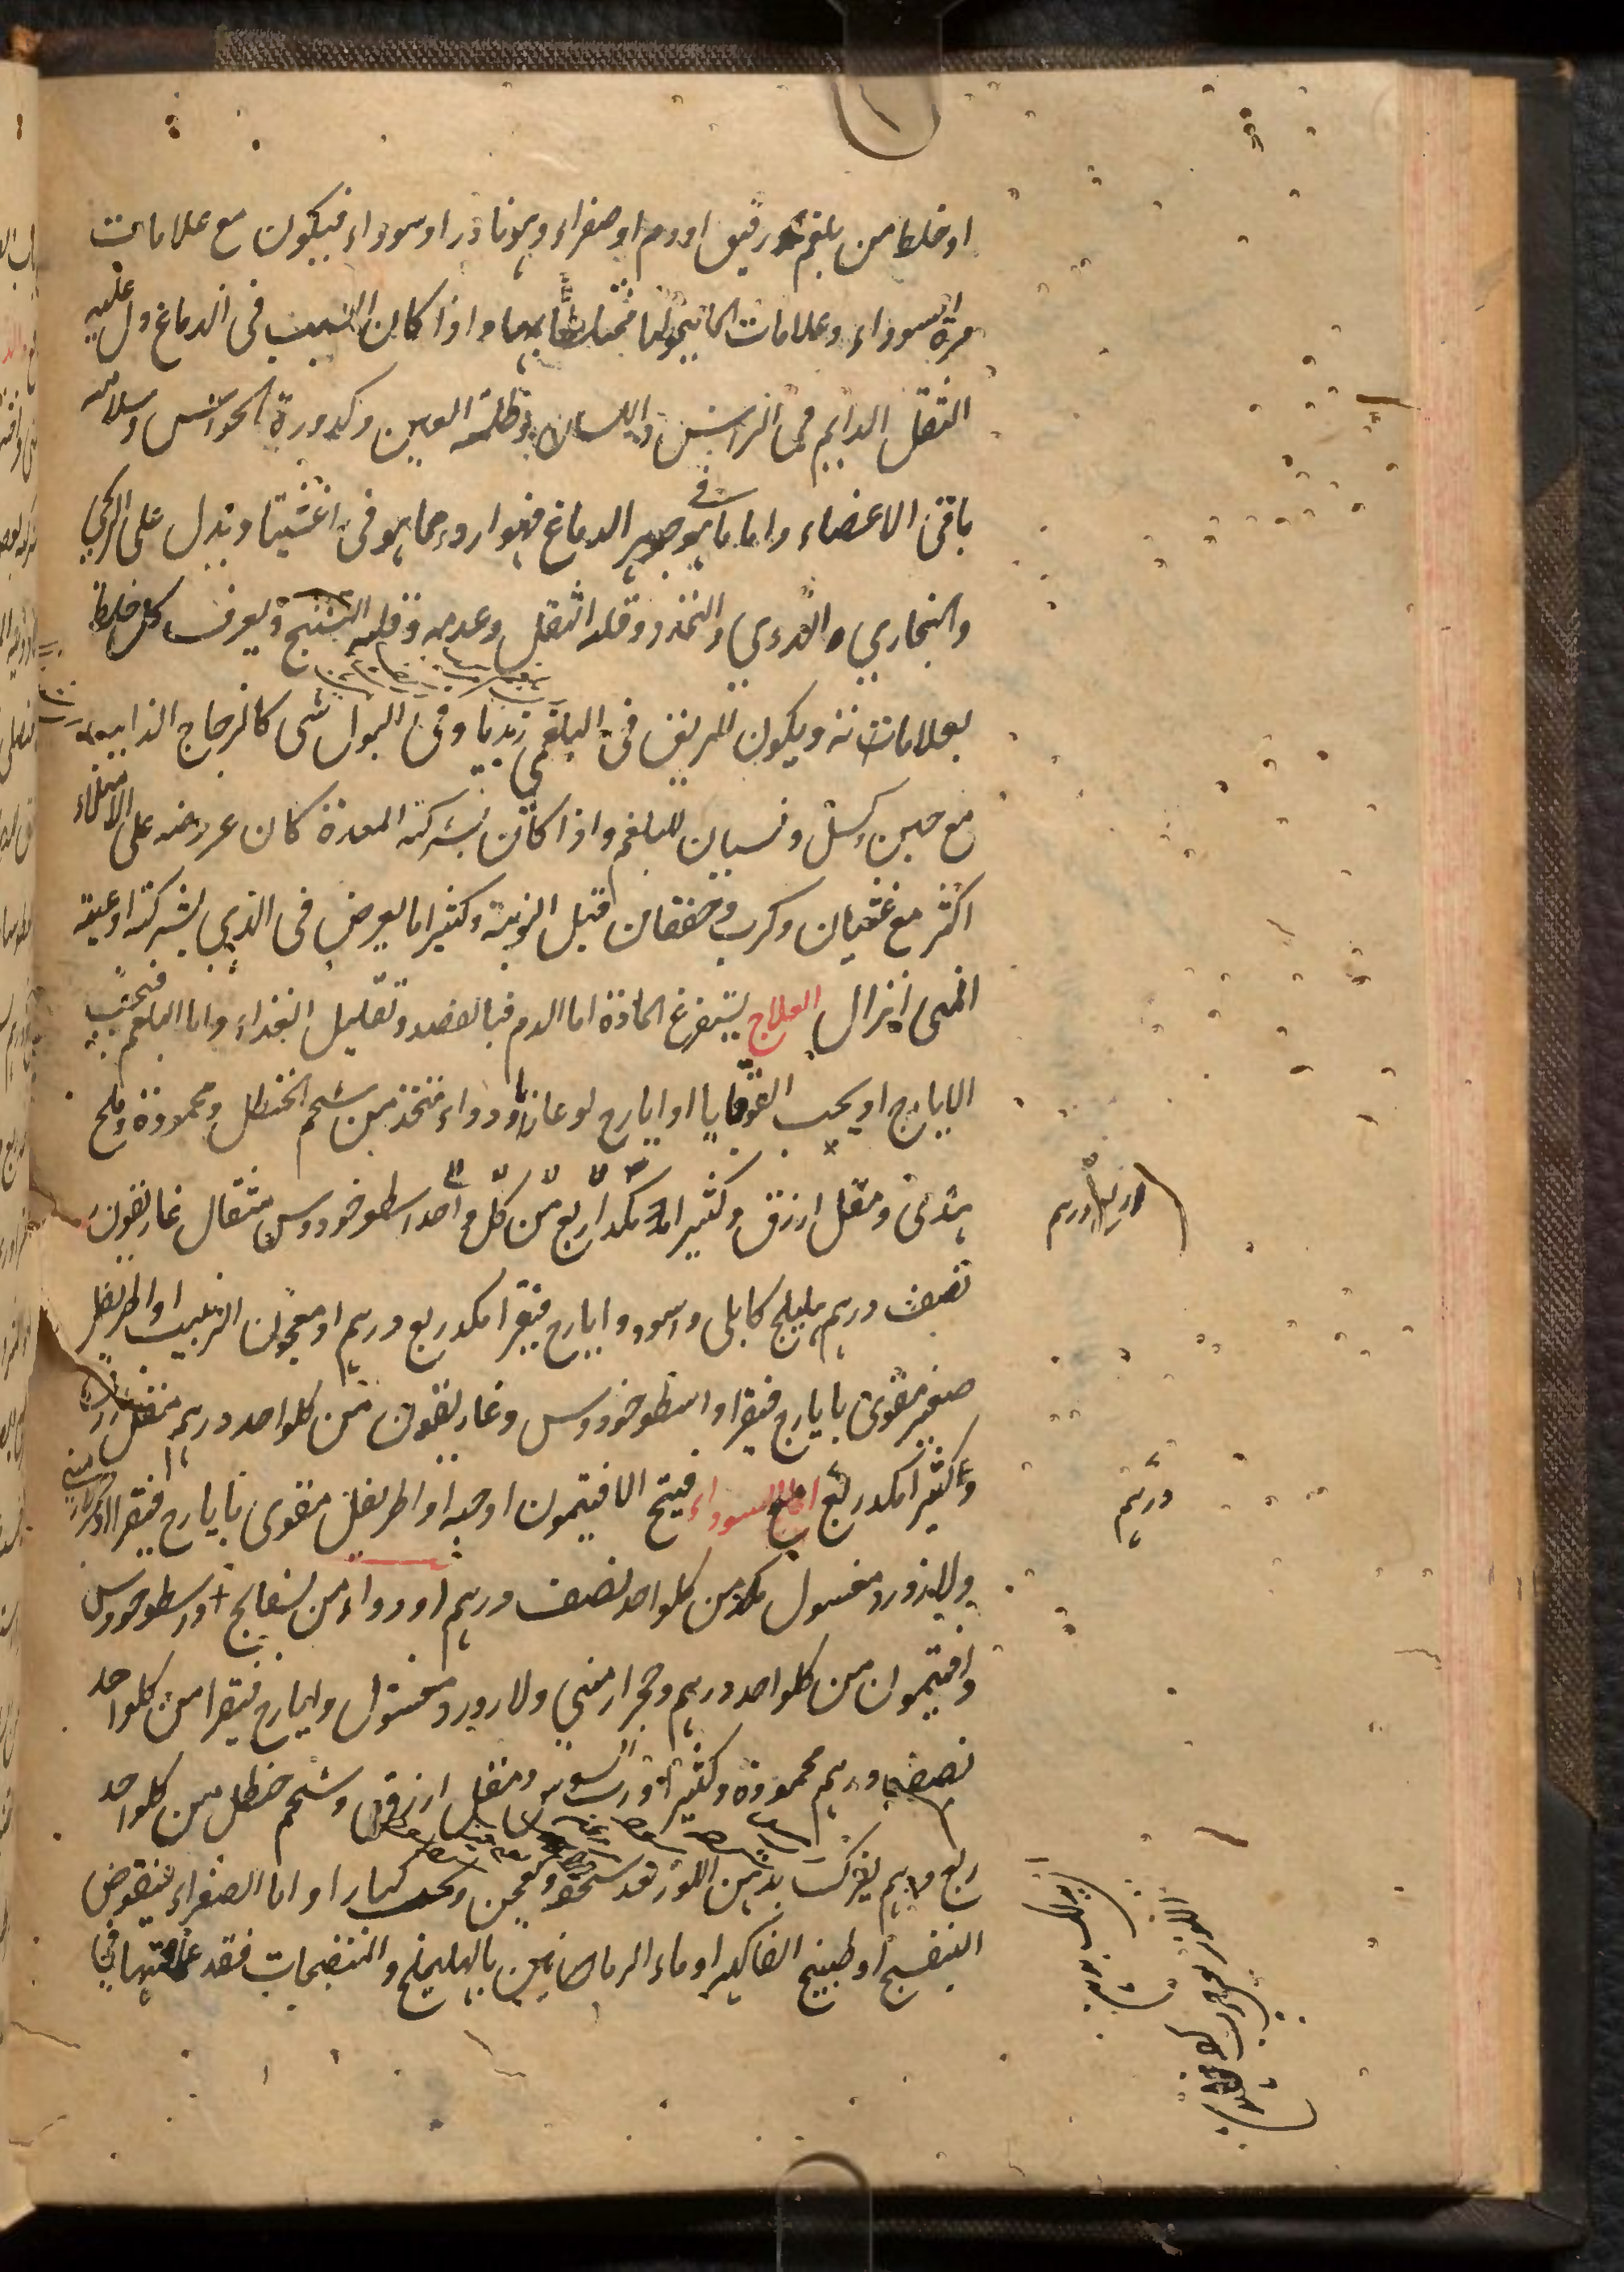 او خلط من بلغم رقيق او دم او صفراء وهو نادر او سوداء فيكون مع علامات
مرة السوداء وعلامات الماليخوليا واذا كان السبب في الدماغ دل عليه
الثقل الدايم في الراس واللسان وظلمة العين وكدورة الحواس وسلامة
باقي الاعضاء واما ما هو في جوهر الدماغ فهو اردء مما هو في اغشيتها ويدل على الريحي
والبخاري الدوي والتمدد وقلة الثقل وعدمه وقلة التشنج ويعرف كل خلط
بعلاماته ويكون للريق في البلغمي زبديا وفي البول شي كالزجاج الذايب
مع جبن وكسل ونسيان للبلغم واذا كان بشركة المعدة كان عروضه على الامتلاء
اكثر مع غثيان وكرب وخفقان قبل النوبة وكثيرا ما يعرض في الذي بشركة اوعية
المني انزال العلاج يستفرغ المادة اما الدم فبالفصد وتقليل الغذاء واما البلغم فبحب
الايارج او بحب القوقايا او ايارج لوغاذيا ودواء متخذ من شحم الحنظل ومحمودة وملح
هندي ومقل ازرق وكثيرا مكد ربع من كل واحد اسطوخودوس مثقال غاريقون
نصف درهم هليلج كابلي واسود وايارج فيقرا مكد ربع درهم او معجون الزبيب او اطريفل
صغير مقوى بايارج فيقرا واسطوخودوس وغاريقون من كلواحد درهم مقل
وكثيرا مكد ربع اما السوداء فبطبخ الافتيمون او حبه او اطريفل مقوى بايارج فيقرا
ولازورد مغسول مكد من كلواحد نصف درهم او دواء من بسفايج واسطوخودوس
وافتيمون من كلواحد درهم وحجر ارمني ولازورد مغسول وايارج فيقرا من كلواحد
نصف درهم محمودة وكثيرا ورب سوس ومقل ازرق وشحم حنظل من كلواحد
ربع درهم يفرك بدهن اللوز بعد سحقه ويعجن ويحبب كبارا واما الصفراء فبقرص
البنفسج او طبيخ الفاكهة او ماء الرمانين بالهليلج والمنضجات فقد علمتها في
درهم